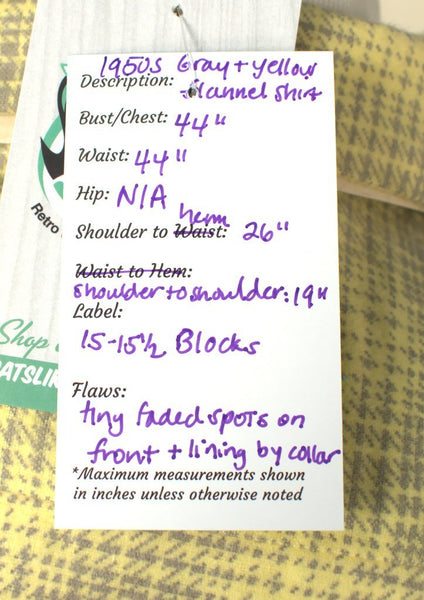 1950s Gray + yellow
Description: flannel shirt
Bust/Chest: 44"
Waist: 44"
Hip: N/A
hem
Shoulder to Waist: 26"
Waist to Hem:
Shoulder to shoulder: 19"
Label:
15-15½ Blocks
Flaws:
tiny faded spots on
front + lining by collar
*Maximum measurements shown
in inches unless otherwise noted
Retro
Shop